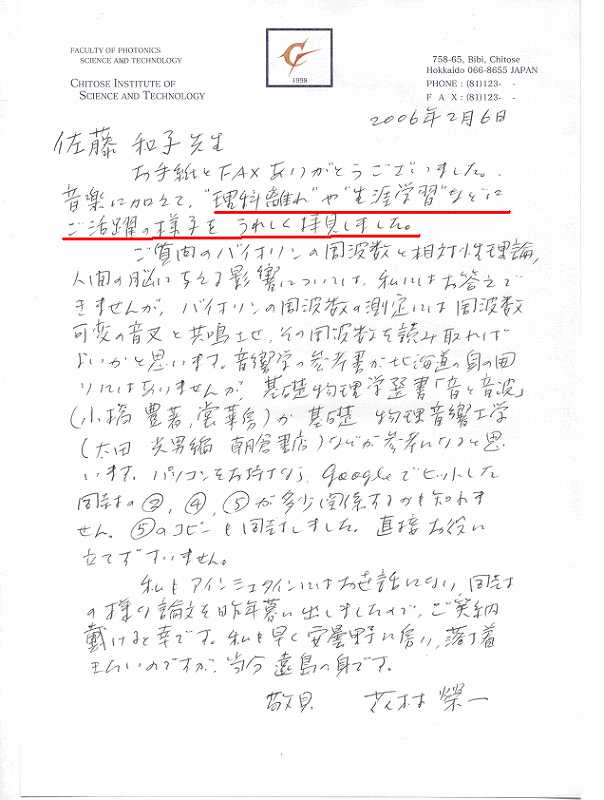 FACULTY OF PHOTONICS
SCIENCE AND TECHNOLOGY
CHITOSE INSTITUTE OF
SCIENCE AND TECHNOLOGY
1998
758-65, Bibi, Chitose
Hokkaido 066-8655 JAPAN
PHONE : (81)123- -
F A X : (81)123- -
2006年2月6日
佐藤 和子先生
お手紙とFAXありがとうございました。
音楽に加えて、"理科離れ"や"生涯学習"などに
ご活躍の様子を うれしく拝見しました。
ご質問のバイオリンの周波数と相対性理論,
人間の脳に与える影響については、私にはお答えで
きませんが、バイオリンの周波数の測定には周波数
可変の音叉と共鳴させ、その周波数を読み取れば
よいかと思います。音響学の参考書が北海道の身の回
りにはありませんが、基礎物理学選書「音と音波」
(小橋 豊著,裳華房)が 基礎 物理音響工学
(太田 光男編 朝倉書店)などが参考になると思
います。パソコンをお持ちなら、Googleでヒットした
同封の③,④,⑤が多少関係するかも知れま
せん。⑤のコピーも同封しました。直接お役に
立てずすいません。
私もアインシュタインにはお世話になり、同封
の様な論文を昨年暮に出しましたので、ご笑納
戴けると幸です。私も早く安曇野に帰り、落ち着
きたいのですが、当分 遠島の身です。
敬具 栄一